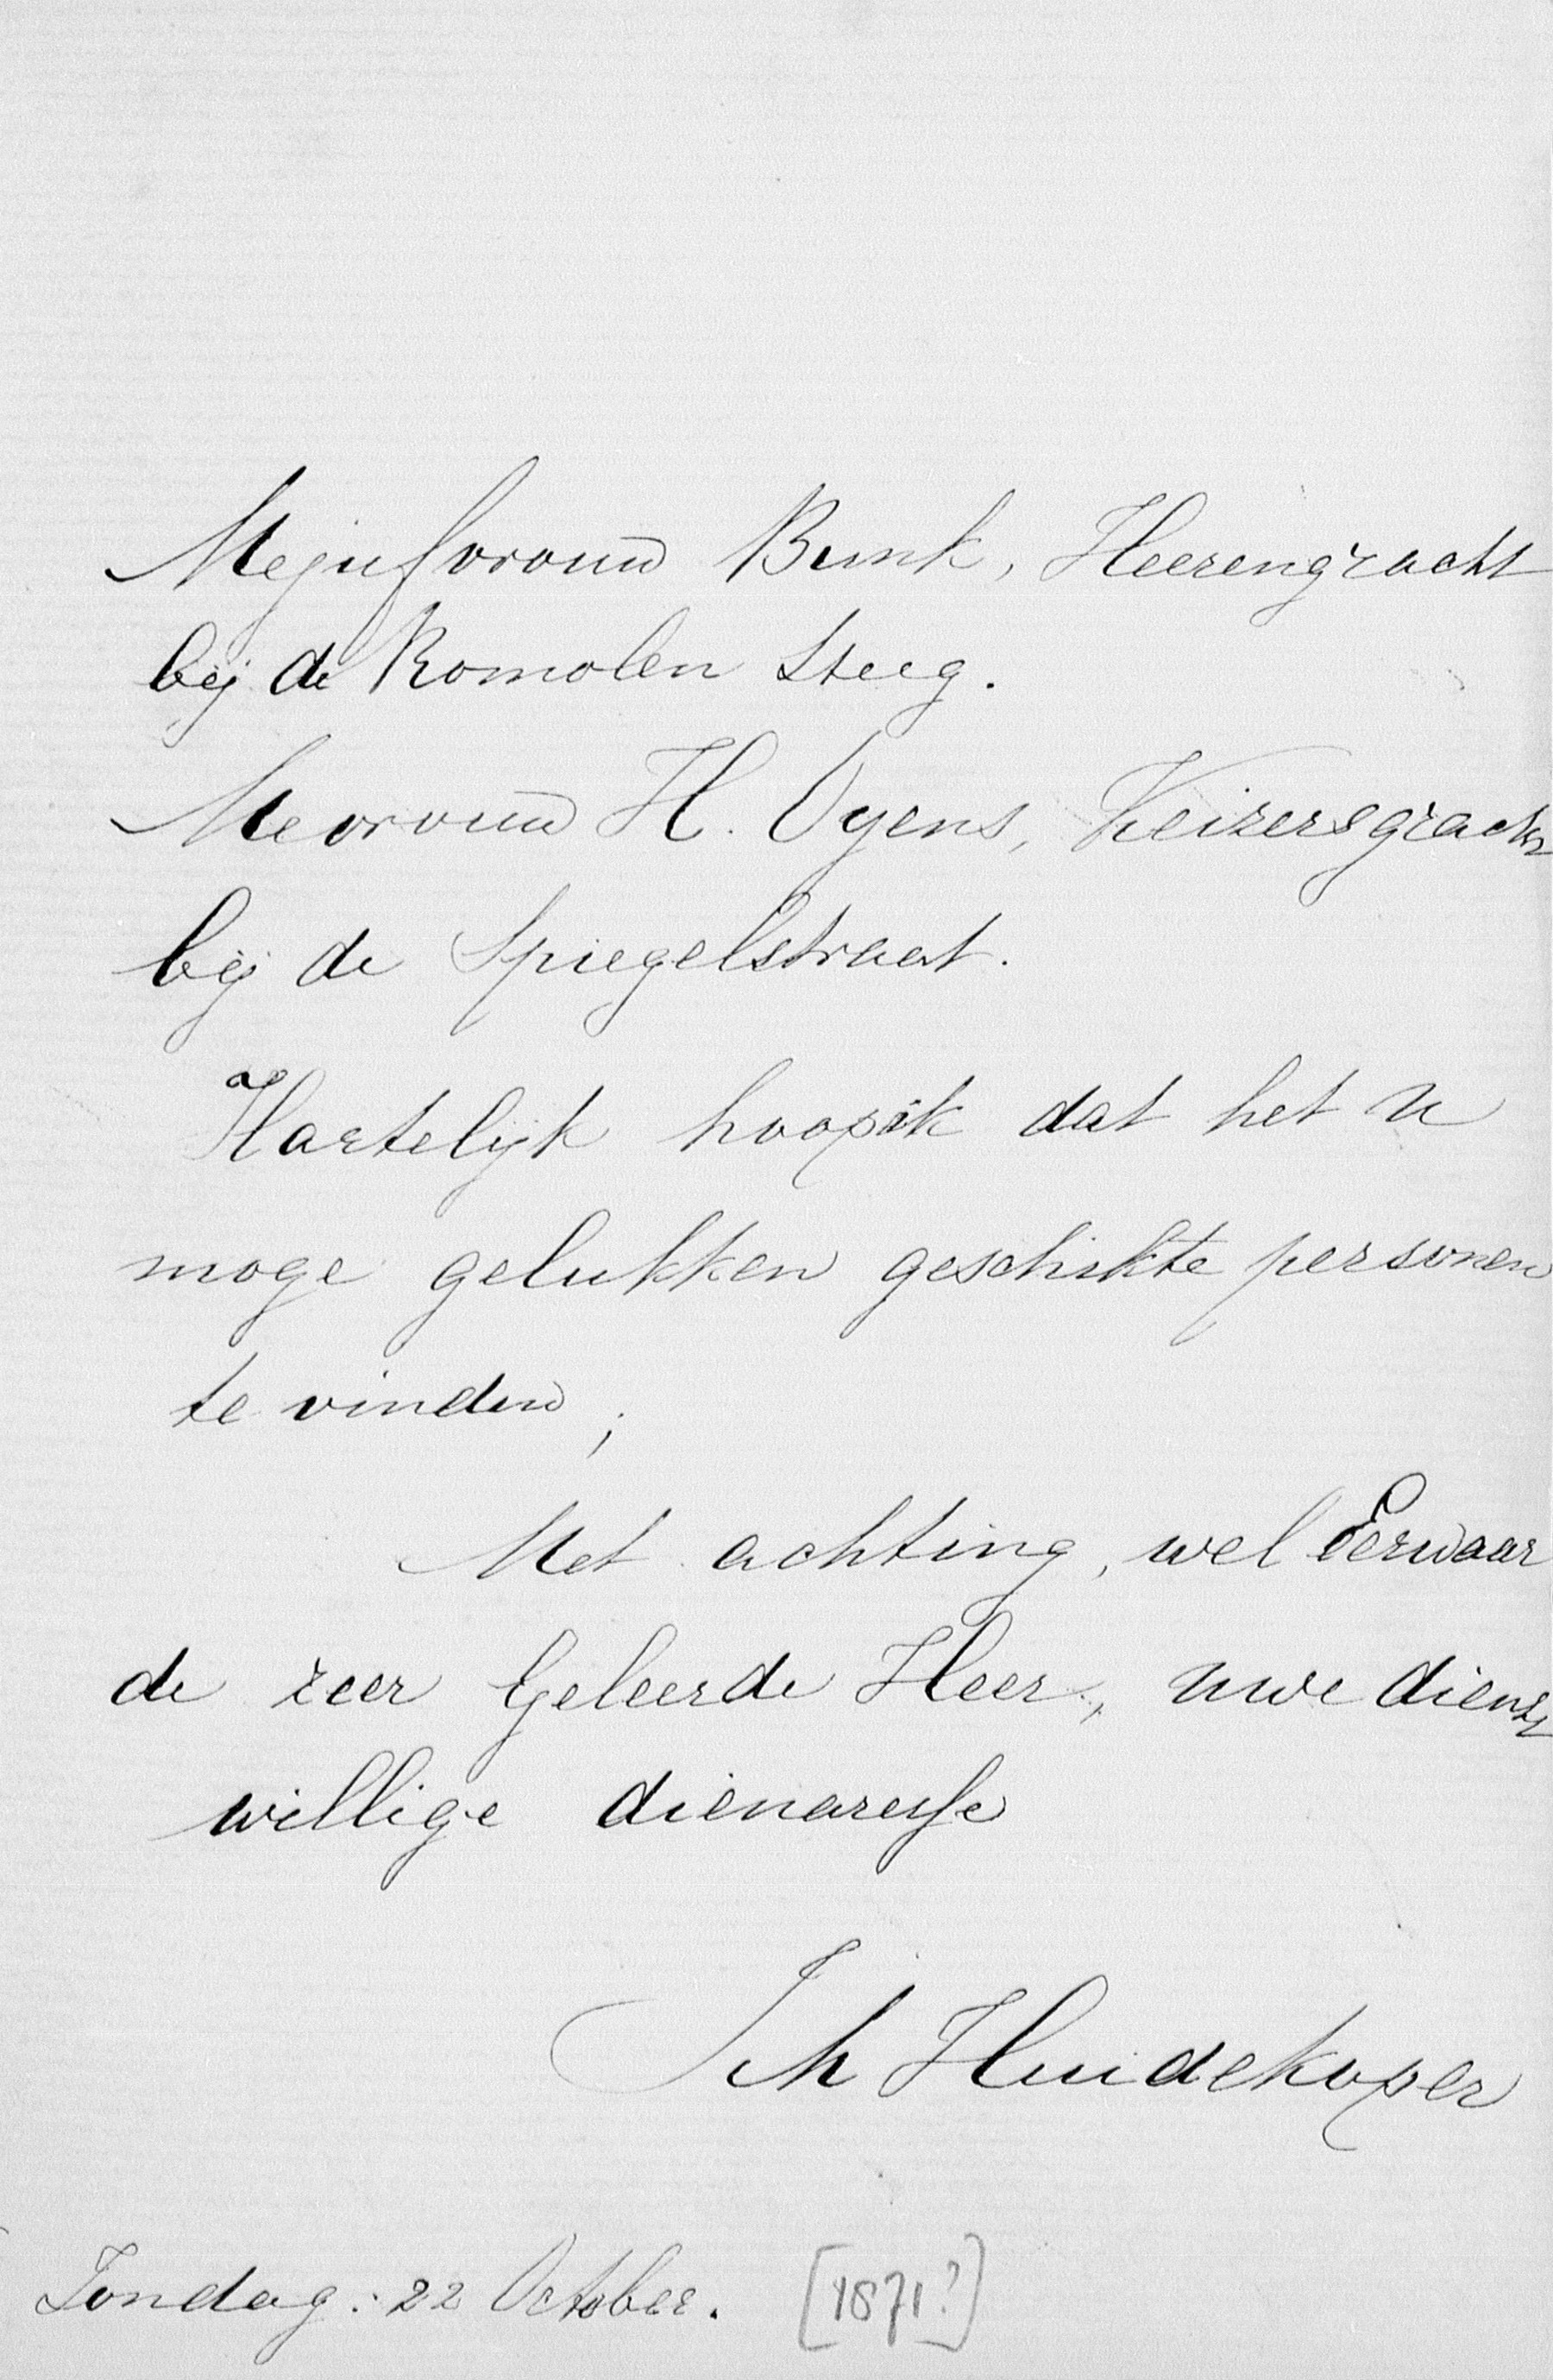 Mejufvrouw Bunk, Heerengracht
bij de Romolen Steeg.
Mevrouw H. Oyens, Keizersgracht
bij de Spiegelstraat.
Hartelijk hoop ik dat het U
moge gelukken geschikte personen
te vinden;
Met achting, wel Eerwaar
de zeer Geleerde Heer, uwe dienst
willige dienaresse
Huidekoper
Zondag. 22 October. [1871?]